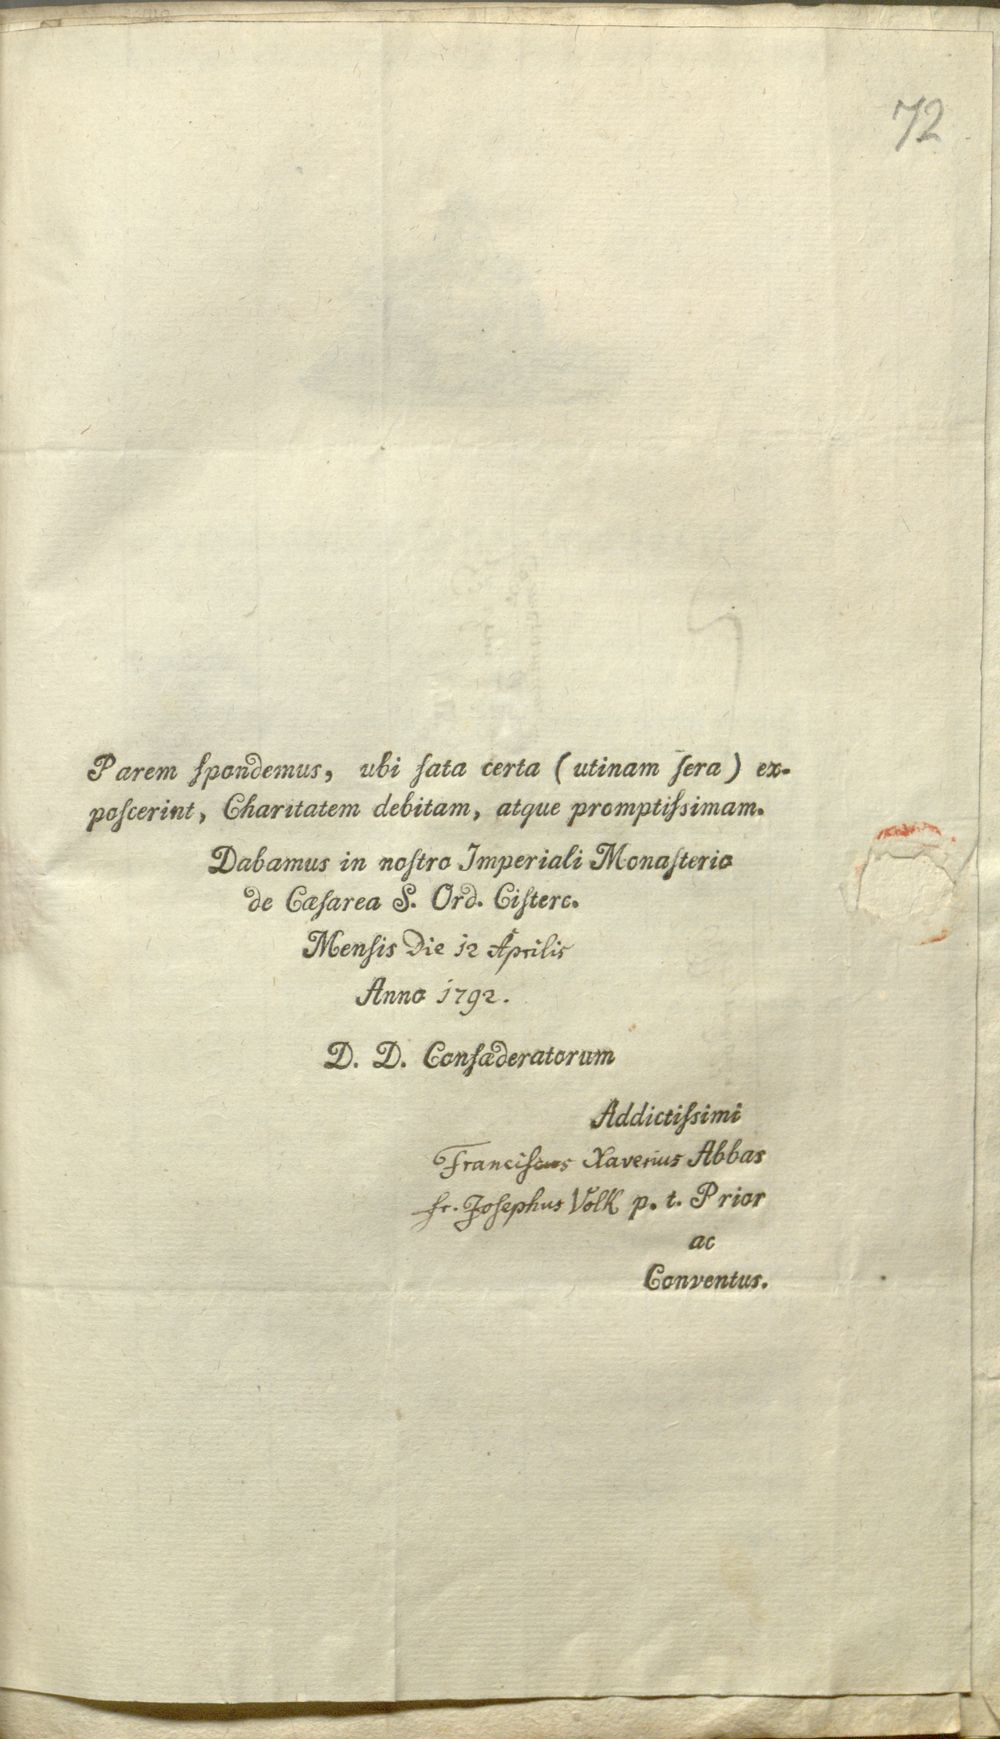 72
Parem spondemus, ubi fata certa (utinam sera) ex-
poscerint, Charitatem debitam, atque promptissimam.
Dabamus in nostro Imperiali Monasterio
de Cæsarea S. Ord. Cisterc.
Mensis Die 12 Aprilis
Anno 1792.
D. D. Confæderatorum
Addictissimi
Franciscus Xaverius Abbas
fr. Josephus Volk p. t. Prior
ac
Conventus.